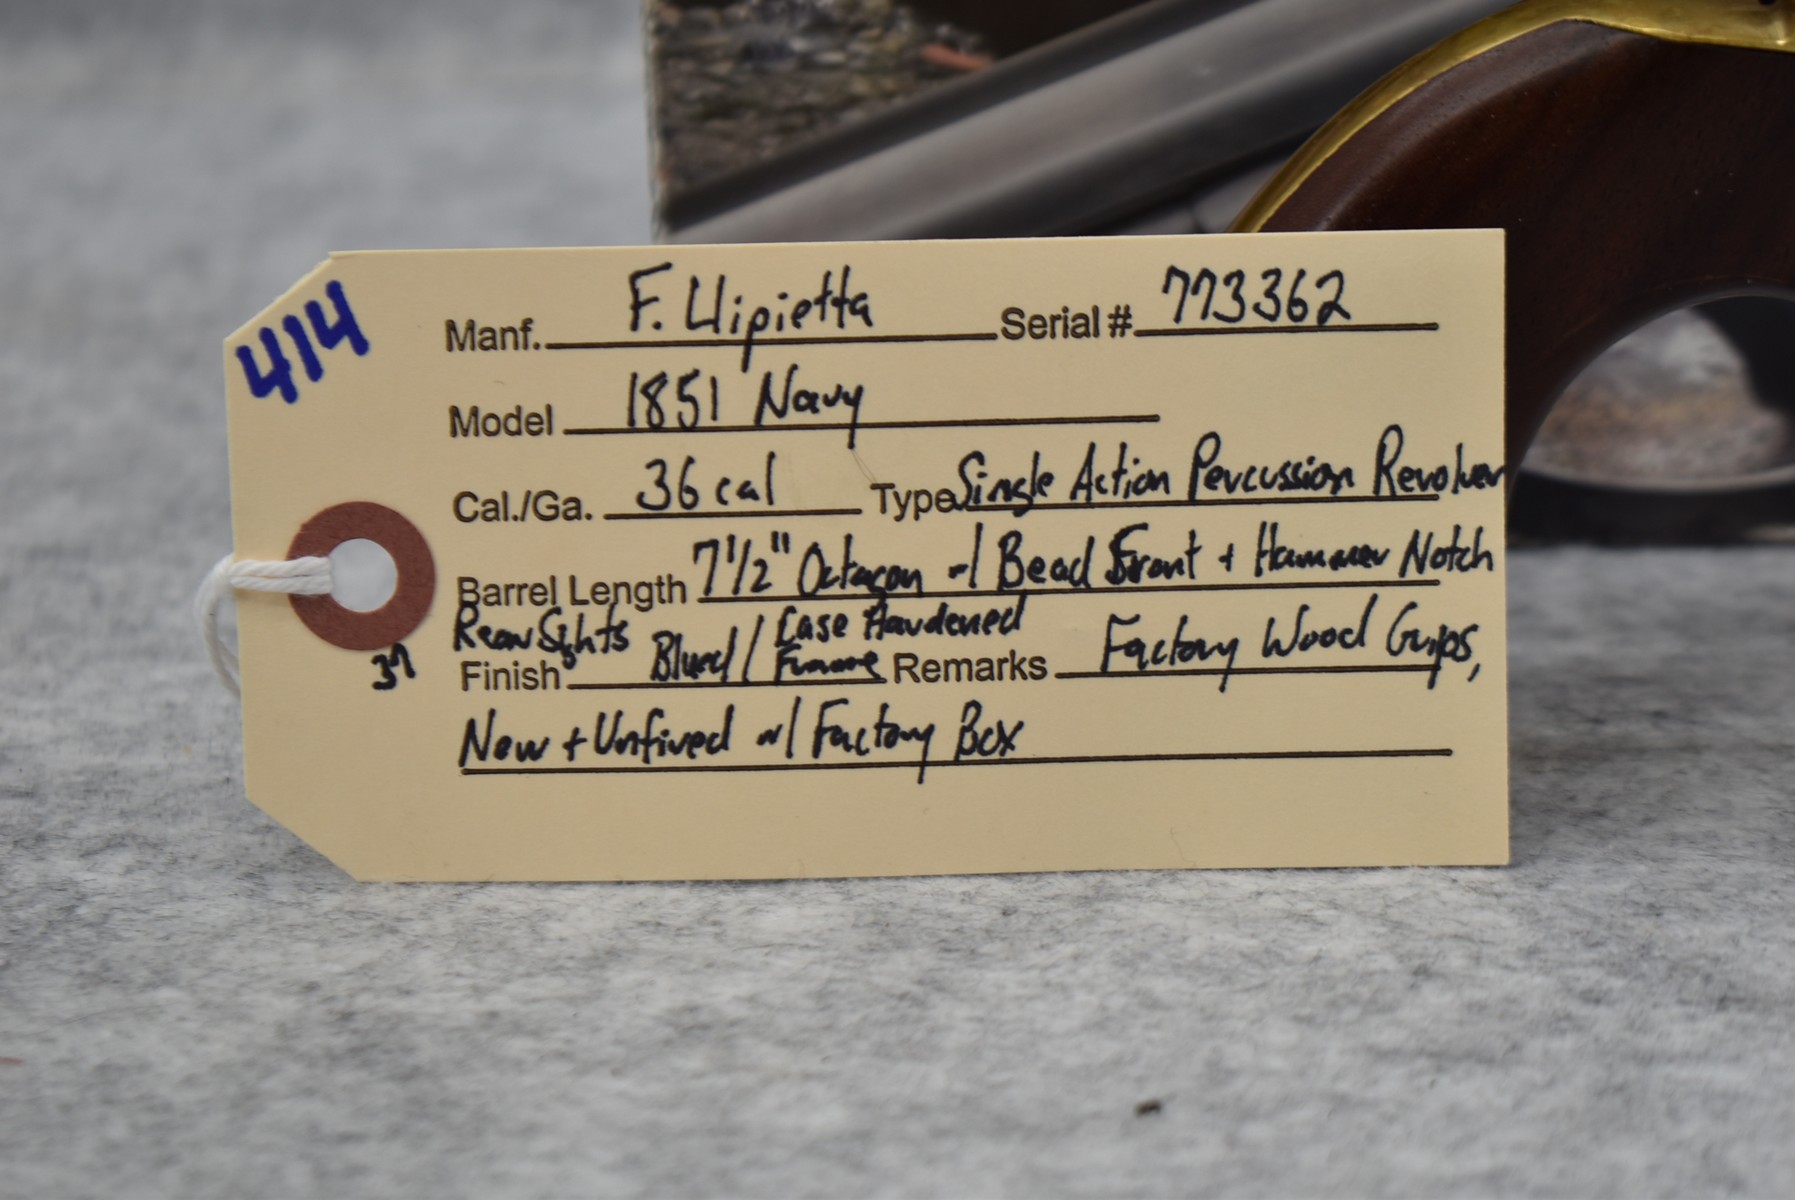 414
Manf. F. LLipietta Serial # 773362
Model 1851 Navy
Cal./Ga. 36 cal Type Single Action Percussion Revolver
Barrel Length 7 1/2" Octagon w/ Bead Front + Hammer Notch
Rear Sights
Finish Blued / Case Hardened Frame Remarks Factory Wood Grips,
37
New + Unfired w/ Factory Box